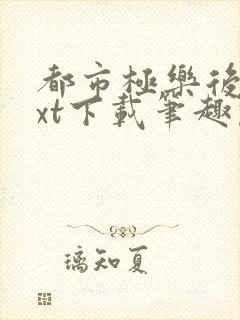 都市極樂後
xt下載筆趣
璃知夏